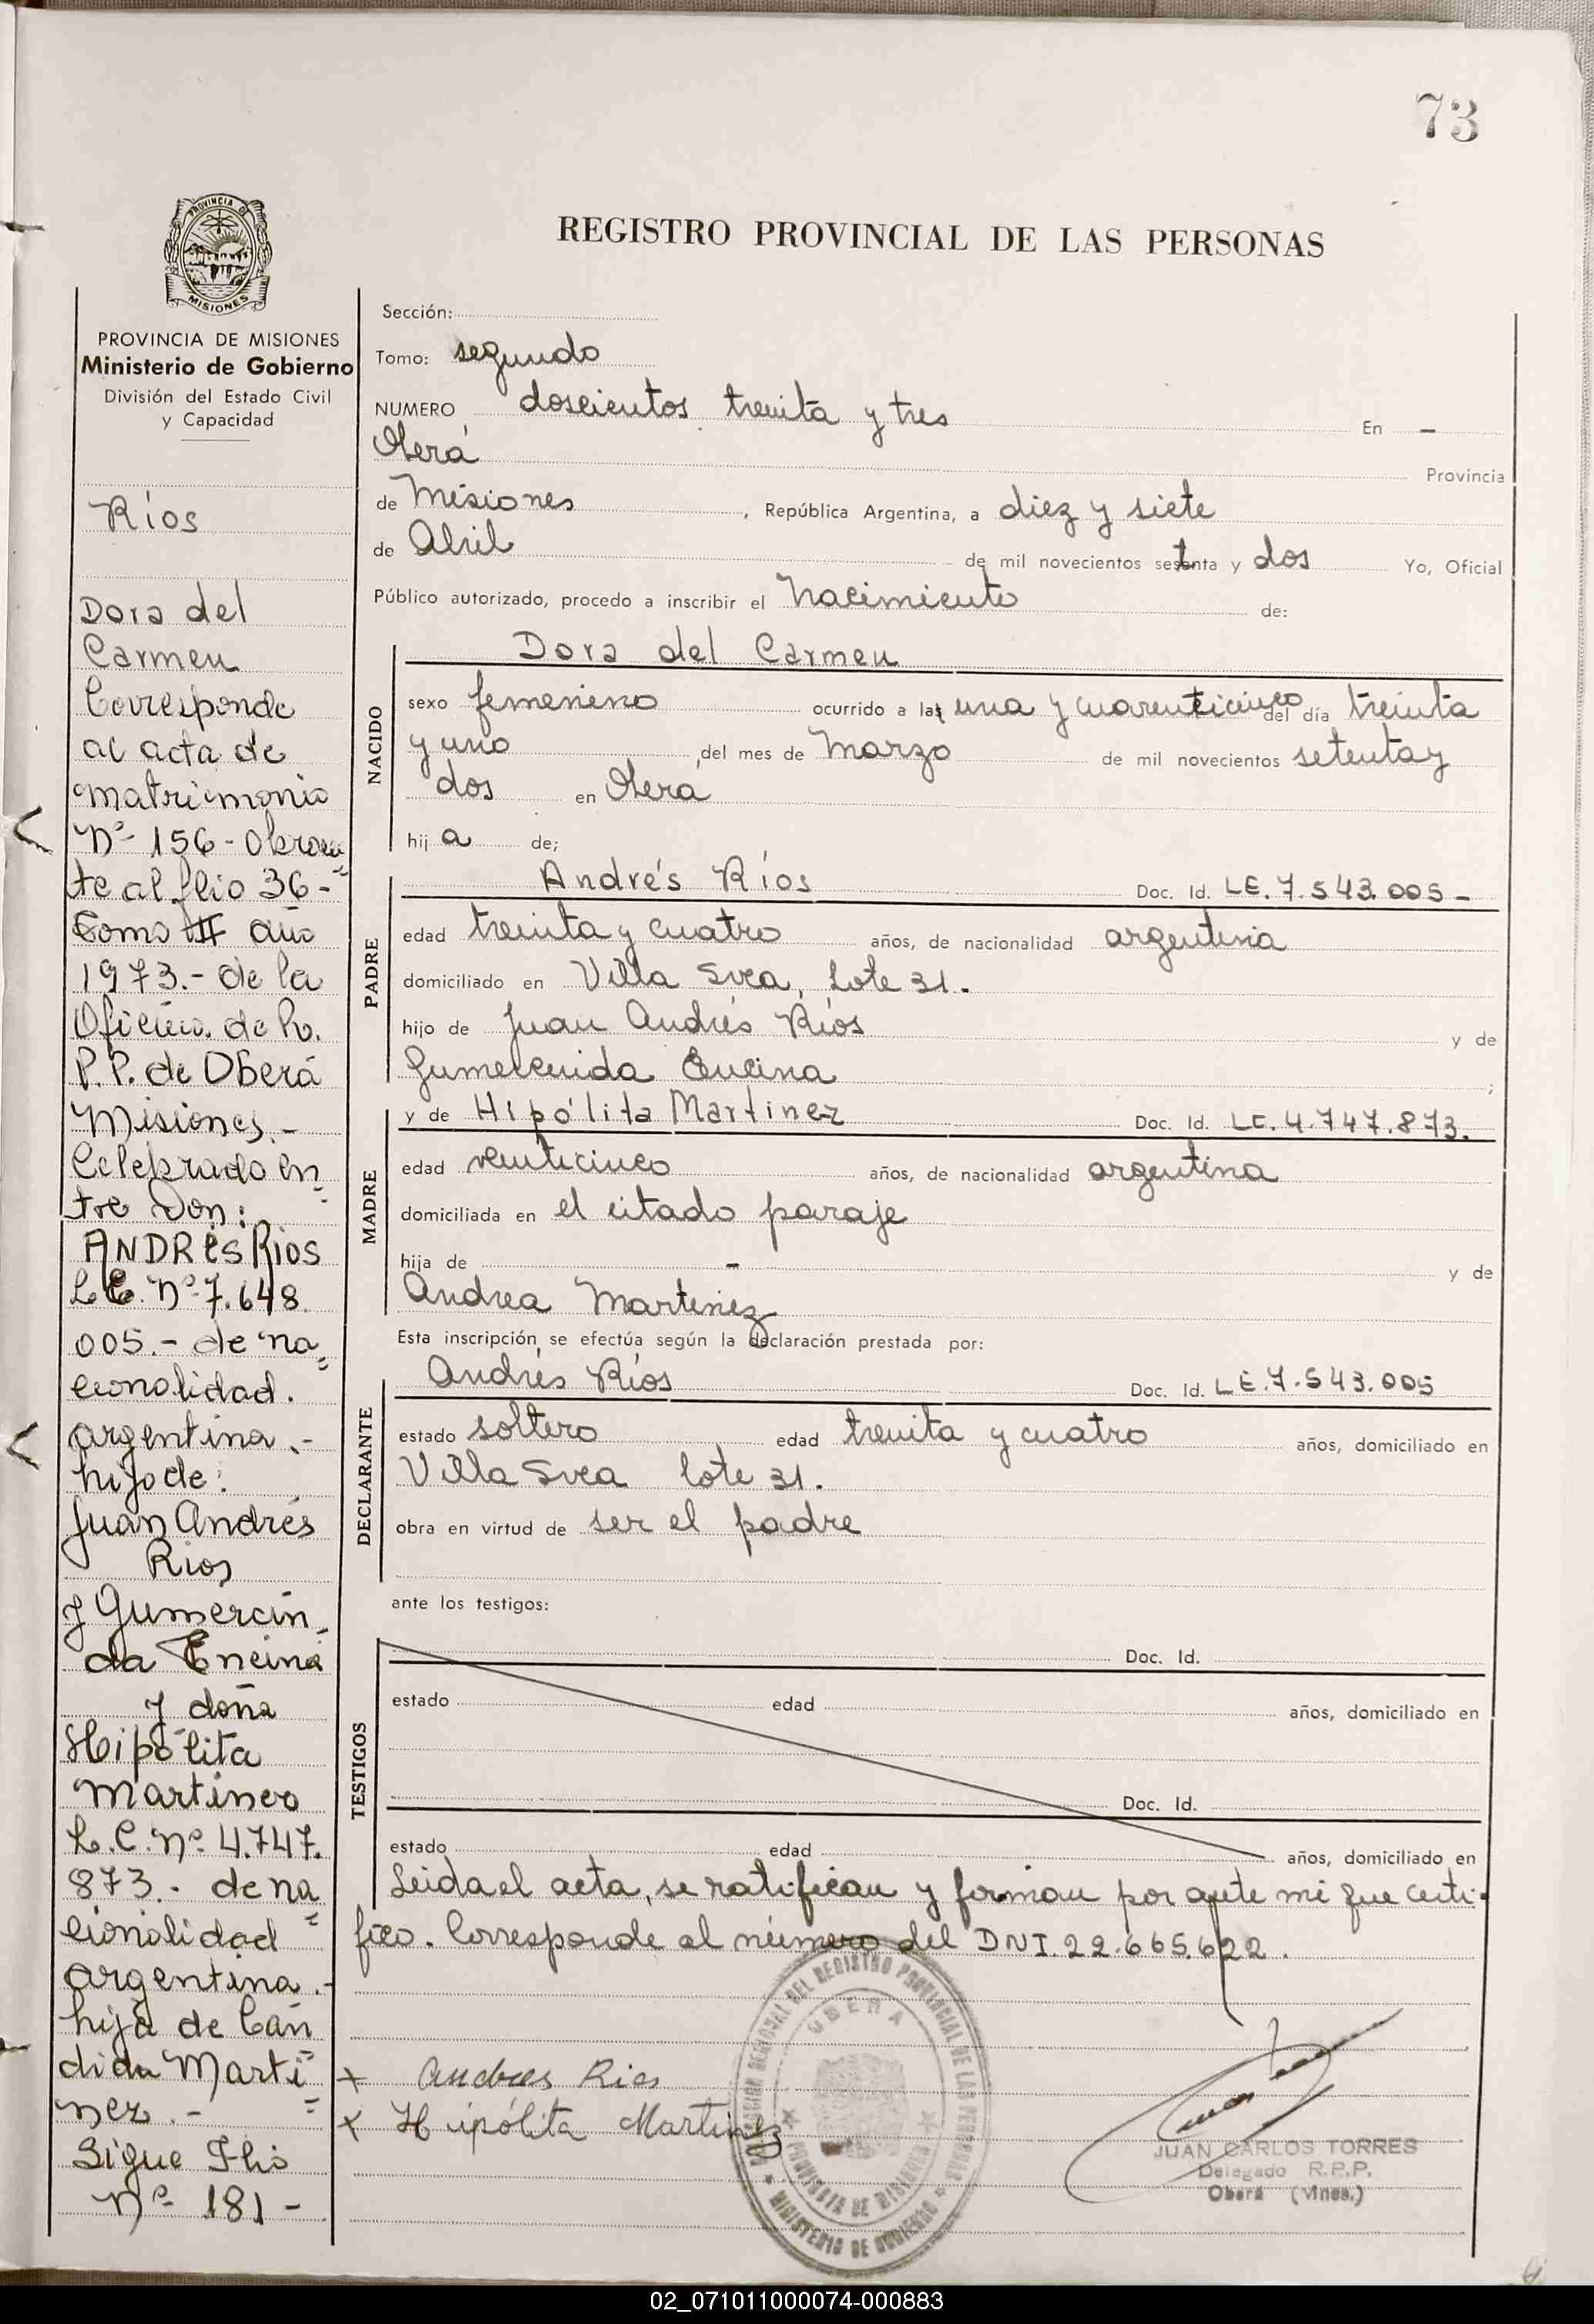 73
PROVINCIA DE
MISIONES
REGISTRO PROVINCIAL DE LAS PERSONAS
PROVINCIA DE MISIONES
Ministerio de Gobierno
División del Estado Civil
y Capacidad
Ríos
Dora del
Carmen
Corresponde
al acta de
matrimonio
Nº 156 - Obran=
te al flio 36 -
Tomo II año
1973.- de la
Oficina. de R.
P.P. de Oberá
Misiones.-
Celebrado en=
tre Don:
ANDRÉS RIOS
L.E. Nº 7.648.
005.- de na=
cionalidad.
argentina.-
hijo de:
Juan Andrés
Rios
y Gumercin_
da Encina
y doña
Hipólita
Martinez
L.C. Nº 4.747.
873.- de na=
cionalidad
argentina.-
hija de Can=
dida Marti=
nez.-
Sigue Flio
Nº 181 -
Sección:
Tomo: segundo
NUMERO doscientos treinta y tres En -
Oberá Provincia
de Misiones, República Argentina, a diez y siete
de Abril de mil novecientos setenta y dos Yo, Oficial
Público autorizado, procedo a inscribir el nacimiento de:
NACIDO
Dora del Carmen
sexo femenino ocurrido a las una y cuarenticinco del día treinta
y uno, del mes de Marzo de mil novecientos setenta y
dos en Oberá
hija de;
PADRE
Andrés Ríos Doc. Id. LE. 7.543.005 -
edad treinta y cuatro años, de nacionalidad argentina
domiciliado en Villa Svea, Lote 31.
hijo de Juan Andrés Ríos y de
Gumercinda Encina;
MADRE
y de Hipólita Martinez Doc. Id. LC. 4.747.873.
edad veinticinco años, de nacionalidad argentina
domiciliada en el citado paraje
hija de - y de
Andrea Martinez
Esta inscripción, se efectúa según la declaración prestada por:
DECLARANTE
Andrés Ríos Doc. Id. LE. 7.543.005
estado soltero edad treinta y cuatro años, domiciliado en
Villa Svea lote 31.
obra en virtud de ser el padre
ante los testigos:
TESTIGOS
Doc. Id.
estado edad años, domiciliado en
Doc. Id.
estado edad años, domiciliado en
Leida el acta, se ratifican y firman por ante mi que certi-
fico. Corresponde al número del DNI. 22.665.622.
+ Andres Rios
+ Hipólita Martinez
DEL REGISTRO PROVINCIAL DE LAS PERSONAS
OBERA
PROVINCIA DE MISIONES
MINISTERIO DE GOBIERNO
JUAN CARLOS TORRES
Delegado R.P.P.
Oberá (Mnes.)
02_071011000074-000883